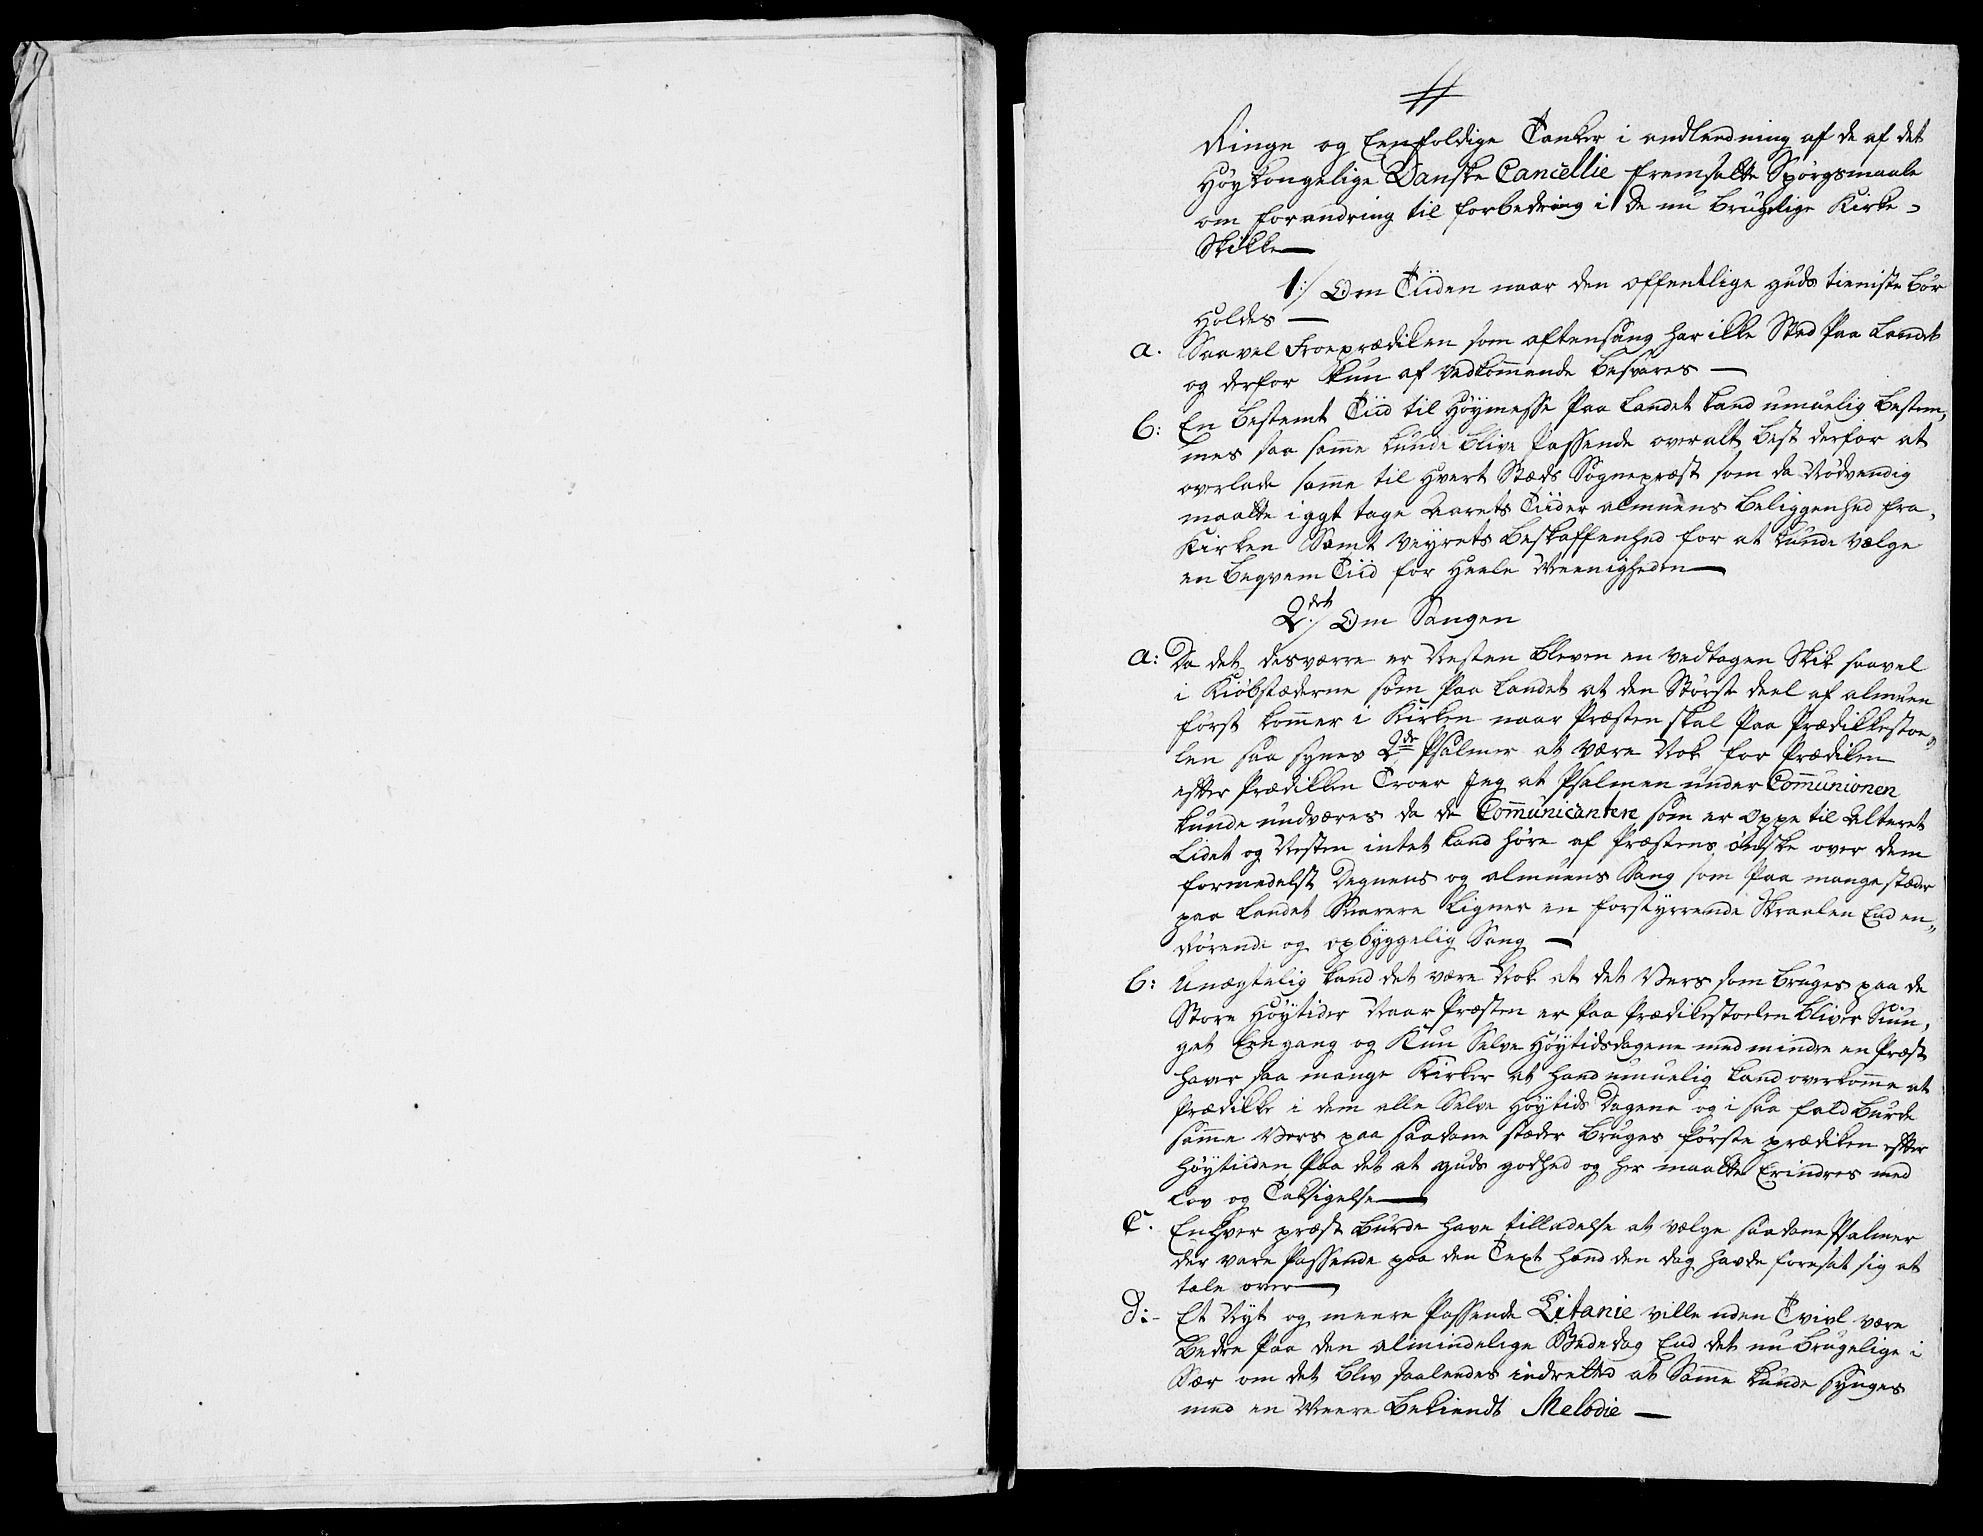 Ringe og Eenfoldige Tanker i andledning af de af det
Høykongelige Danske Cancellie fremsatte Spørgsmaale
om forandring til forbedring i de nu brugelige Kirke-
Skikke
1:/ Om Tiiden naar den offentlige guds tieniste bør
Holdes
a. Saavel Froeprædiken som aftensang har ikke Sted Paa Landet
og derfor kun af vedkommende besvares
b: En bestemt Tiid til Høymesse Paa Landet kand umuelig bestem-
mes saa samme kunde blive Passende overalt best derfor at
overlade samme til Hvert Stæds Sognepræst som da Nødvendig
maatte i agt tage Aarets Tiider almuens beliggenhed fra
Kirken Samt Veyrets beskaffenhed for at kunde vælge
en beqvem Tiid for Heele Meenigheden
2det:/ Om Sangen
a: Da det desværre er Nesten bleven en vedtagen Skik saavel
i Kiøbstæderne som Paa Landet at den Størst deel af almuen
først kommer i Kirken naar Præsten skal Paa Prædikkestoe-
len saa synes 2de Psalmer at være Nok for Prædiken
efter Prædikken Troer Jeg at Psalmen under Communionen
kunde undværes da de Communicantere som er oppe til Alteret
Lidet og Nesten intet kand høre af Præstens ønske over dem
formedelst Degnens og almuens Sang som Paa mange stæder
paa Landet Snarere Ligner en forstyrrende Skraalen End en
rørende og opbyggelig Sang
b: Unægtelig kand det være Nok at det Vers som bruges paa de
Store Høytider Naar Præsten er Paa Prædikestoelen bliver Siun-
get Eengang og Kun Selve Høytidsdagene med mindre en Præst
haver saa mange Kirker at hand umuelig kand overkomme at
Prædikke i dem alle Selve Høytids Dagene og i saa fald burde
samme Vers paa saadane stæder bruges første prædiken efter
Høytiiden Paa det at guds godhed og her maatte Erindres med
Lov og Taksigelse
C. Enhver præst burde have tilladelse at vælge saadane Psalmer
der vare Passende paa den Text hand den dag havde foresat sig at
tale over
d: Et Nyt og meere Passende Litanie ville uden Tvivl være
bedre Paa den almindelige Bededag End det nu brugelige i
Sær om det blev saaledes indretted at Samme kunde synges
med en Meere bekiendt Melodie